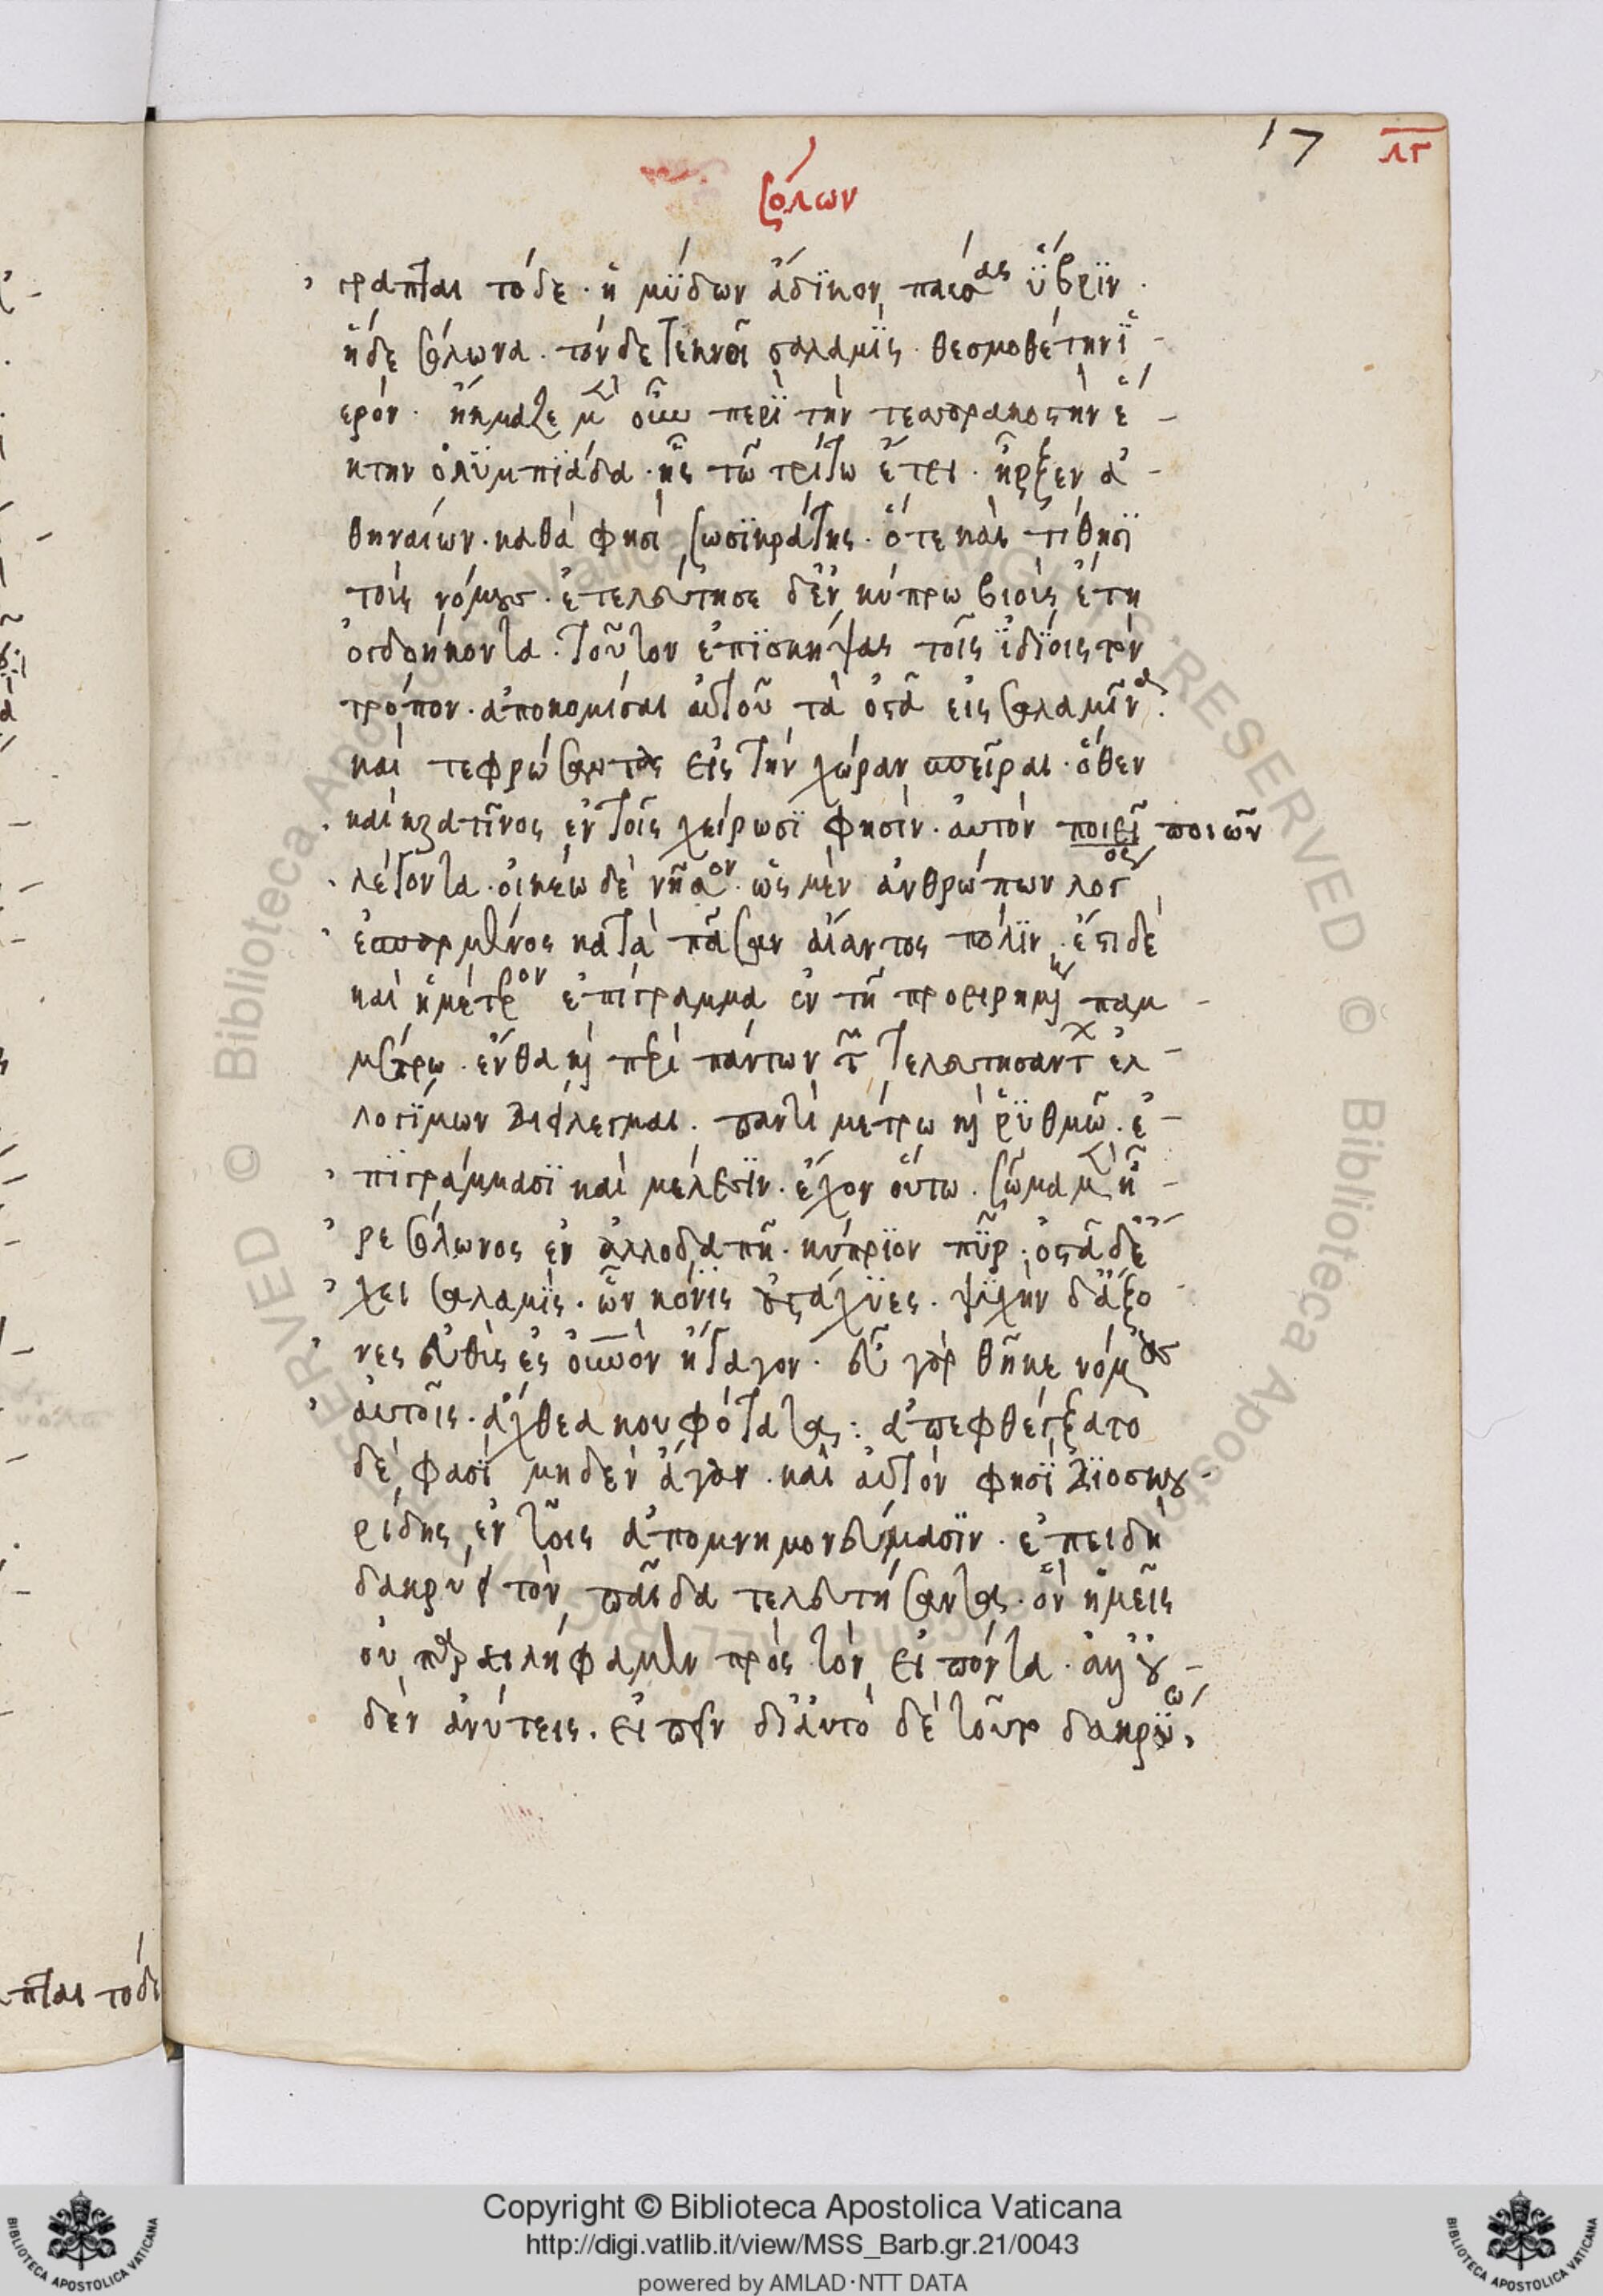 17 λγ
Σόλων
γραπται τόδε. ἡ μΰδων ἄδϊκον παύσας ὕβρϊν.
ἥδε σόλωνα. τόνδε τεκνοῖ σαλαμΐς. θεσμοθέτην ἱ-
ερόν. ἤκμαζε μὲν οὖν περῒ τὴν τεσσρακοστὴν ἕ-
κτην ὀλϋμπϊάδα. ἧς τῶ τρίτω ἔτει. ἦρξεν ἀ-
θηναίων. καθά φησὶ Σωσϊκράτης. ὅτε καὶ τίθησϊ
τοὺς νόμους. ἐτελεύτησε δ' ἐν κύπρω βιοὺς ἔτη
ὀγδοήκοντα. τοῦτον ἐπϊσκήψας τοῖς ϊδίοις τὸν
τρόπον. ἀποκομίσαι αὐτοῦ τὰ ὀστᾶ εἰς σαλαμῖνα.
καὶ τεφρώσαντας εἰς τὴν χώραν σπεῖραι. ὅθεν
καὶ κρατῖνος ἐν τοῖς χείρωσϊ φησὶν. αὐτὸν ποιεῖ ποιῶν
λέγοντα. οἰκέω δὲ νῆσον. ὡς μὲν ἀνθρώπων λόγος
ἐσπαρμένος κατὰ πᾶσαν αἴαντος πόλϊν. ἔστι δὲ
καὶ ἡμέτερον ἐπίγραμμα ἐν τῆ προειρημένη παμ-
μέτρω. ἔνθα καὶ περὶ πάντων τῶν τελευτησάντων ἐλ-
λογίμων διείλεγμαι. παντὶ μέτρω καὶ ῥϋθμῶ. ἐ-
πϊγράμμασϊ καὶ μέλεσϊν. ἔχον οὕτω. Σῶμα μὲν ἦ-
ρε σόλωνος ἐν ἀλλοδαπῆ. κύπρϊον πῦρ. ὀστᾶ δ' ἔ-
χει σαλαμΐς. ὧν κόνϊς ἀστάχϋες. ψϋχὴν δ' ἄξο-
νες εὐθὺς ἐς οὐρανὸν ἤγαγον. εὖ γὰρ θῆκε νόμους
αὐτοῖς. ἄχθεα κουφότατα: ἀπεφθέγξατο
δὲ φασϊ μηδὲν ἄγαν. καὶ αὐτὸν φησϊ διοσκου-
ρίδης ἐν τοῖς ἀπομνημονεύμασϊν. ἐπειδὴ
δακρύει τὸν παῖδα τελευτήσαντα. ὃν ἡμεῖς
οὐ παρειλήφαμεν πρὸς τὸν εἰπόντα. ἀλλ' οὐ-
δὲν ἀνύτεις. εἰπεῖν δϊ' αὐτὸ δὲ τοῦτο δακρύω,
πται τόδε
Copyright © Biblioteca Apostolica Vaticana
http://digi.vatlib.it/view/MSS_Barb.gr.21/0043
powered by AMLAD·NTT DATA